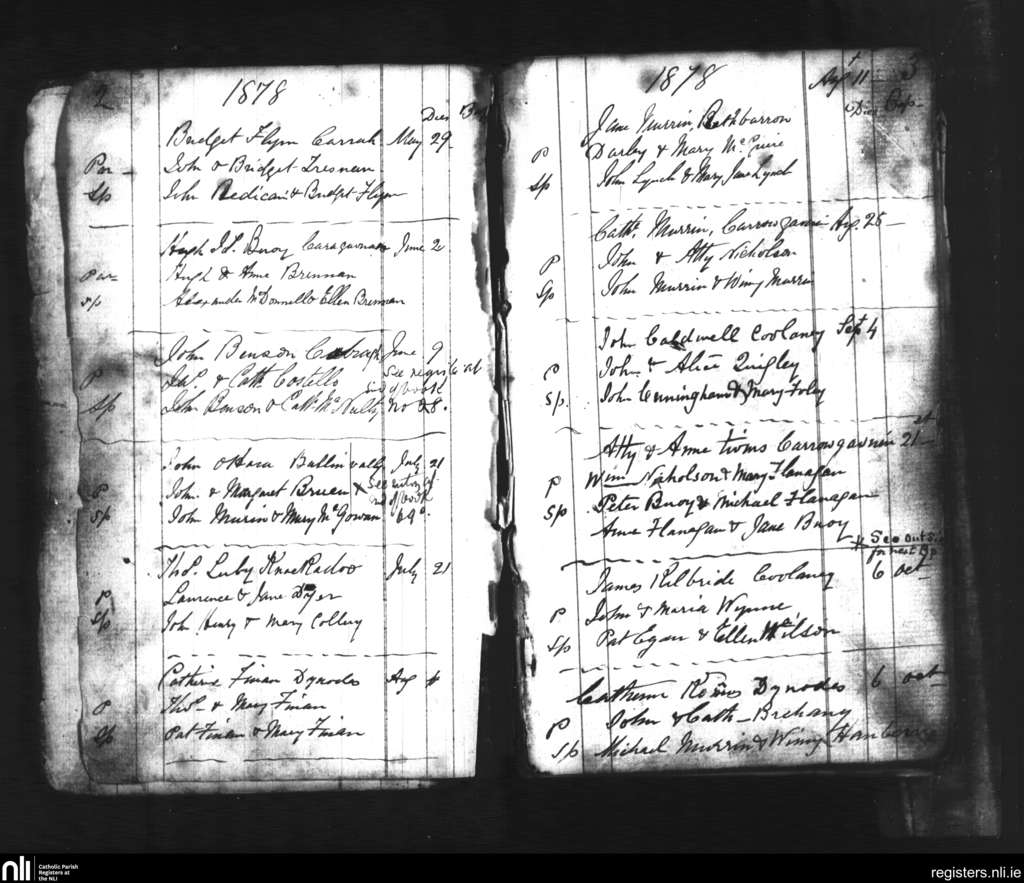 2
1878
Dies Bap
Bridget Flynn Carrah May 29
Par John & Bridget
Sp John Redican & Bridget Flynn
Hugh Js. Buoy June 2
Par Hugh & Anne Brennan
Sp Alexander McDonnell & Ellen Brennan
John Benson Cabragh June 9
P Jas. & Cath. Costello See regis at
end of book
Sp John Benson & Cath. McNulty No 28.
John OHara Ballinvally July 21
P John & Margaret Bruen x See entry at
end of book
Sp John Murrin & Mary McGowan
Thos. Luby Knockadoo July 21
P Laurence & Jane Dyer
Sp John Henry & Mary Collery
Catherine Finan Dynodes Aug 4
P Thos. & Mary Finan
Sp Pat Finan & Mary Finan
3
1878
Aug 11
Dies Bap
Jane Murrin, Rathbarron
P Darley & Mary McGuire
Sp John Lynch & Mary Jane Lynch
Cath. Murrin, Carrowgavnin Aug 25
P John & Atty Nicholson
Sp John Murrin & Winny Murrin
John Caldwell Coolaney Sept 4
P John & Alice Quigley
Sp. John Cunningham & Mary Foley
Atty & Anne twins Carrowgavnin 21
P Wim Nicholson & Mary Flanagan
Sp Peter Buoy & Michael Flanagan
Anne Flanagan & Jane Buoy
x See outside
for next Bp
James Kilbride Coolaney 6 Oct
P John & Maria Wynne
Sp Pat Egan & Ellen Wilson
Catherine Dynodes 6 Oct
P John & Cath Brehany
Sp Michael Murrin & Winny
nli
Catholic Parish
Registers at
the NLI
registers.nli.ie